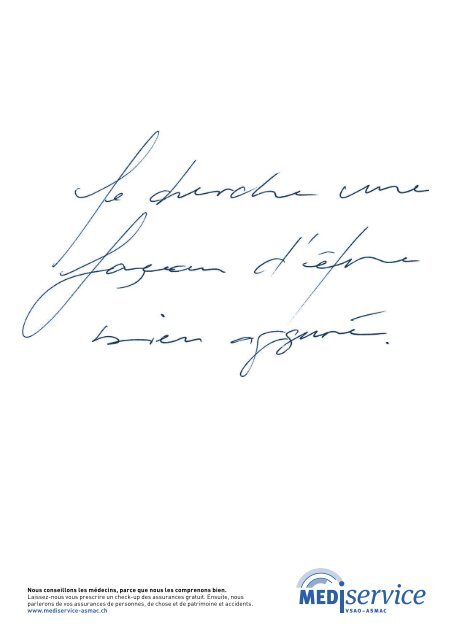 Je cherche une
façon d'être
bien assuré.
Nous conseillons les médecins, parce que nous les comprenons bien.
Laissez-nous vous prescrire un check-up des assurances gratuit. Ensuite, nous
parlerons de vos assurances de personnes, de chose et de patrimoine et accidents.
www.mediservice-asmac.ch
MEDIservice
VSAO-ASMAC